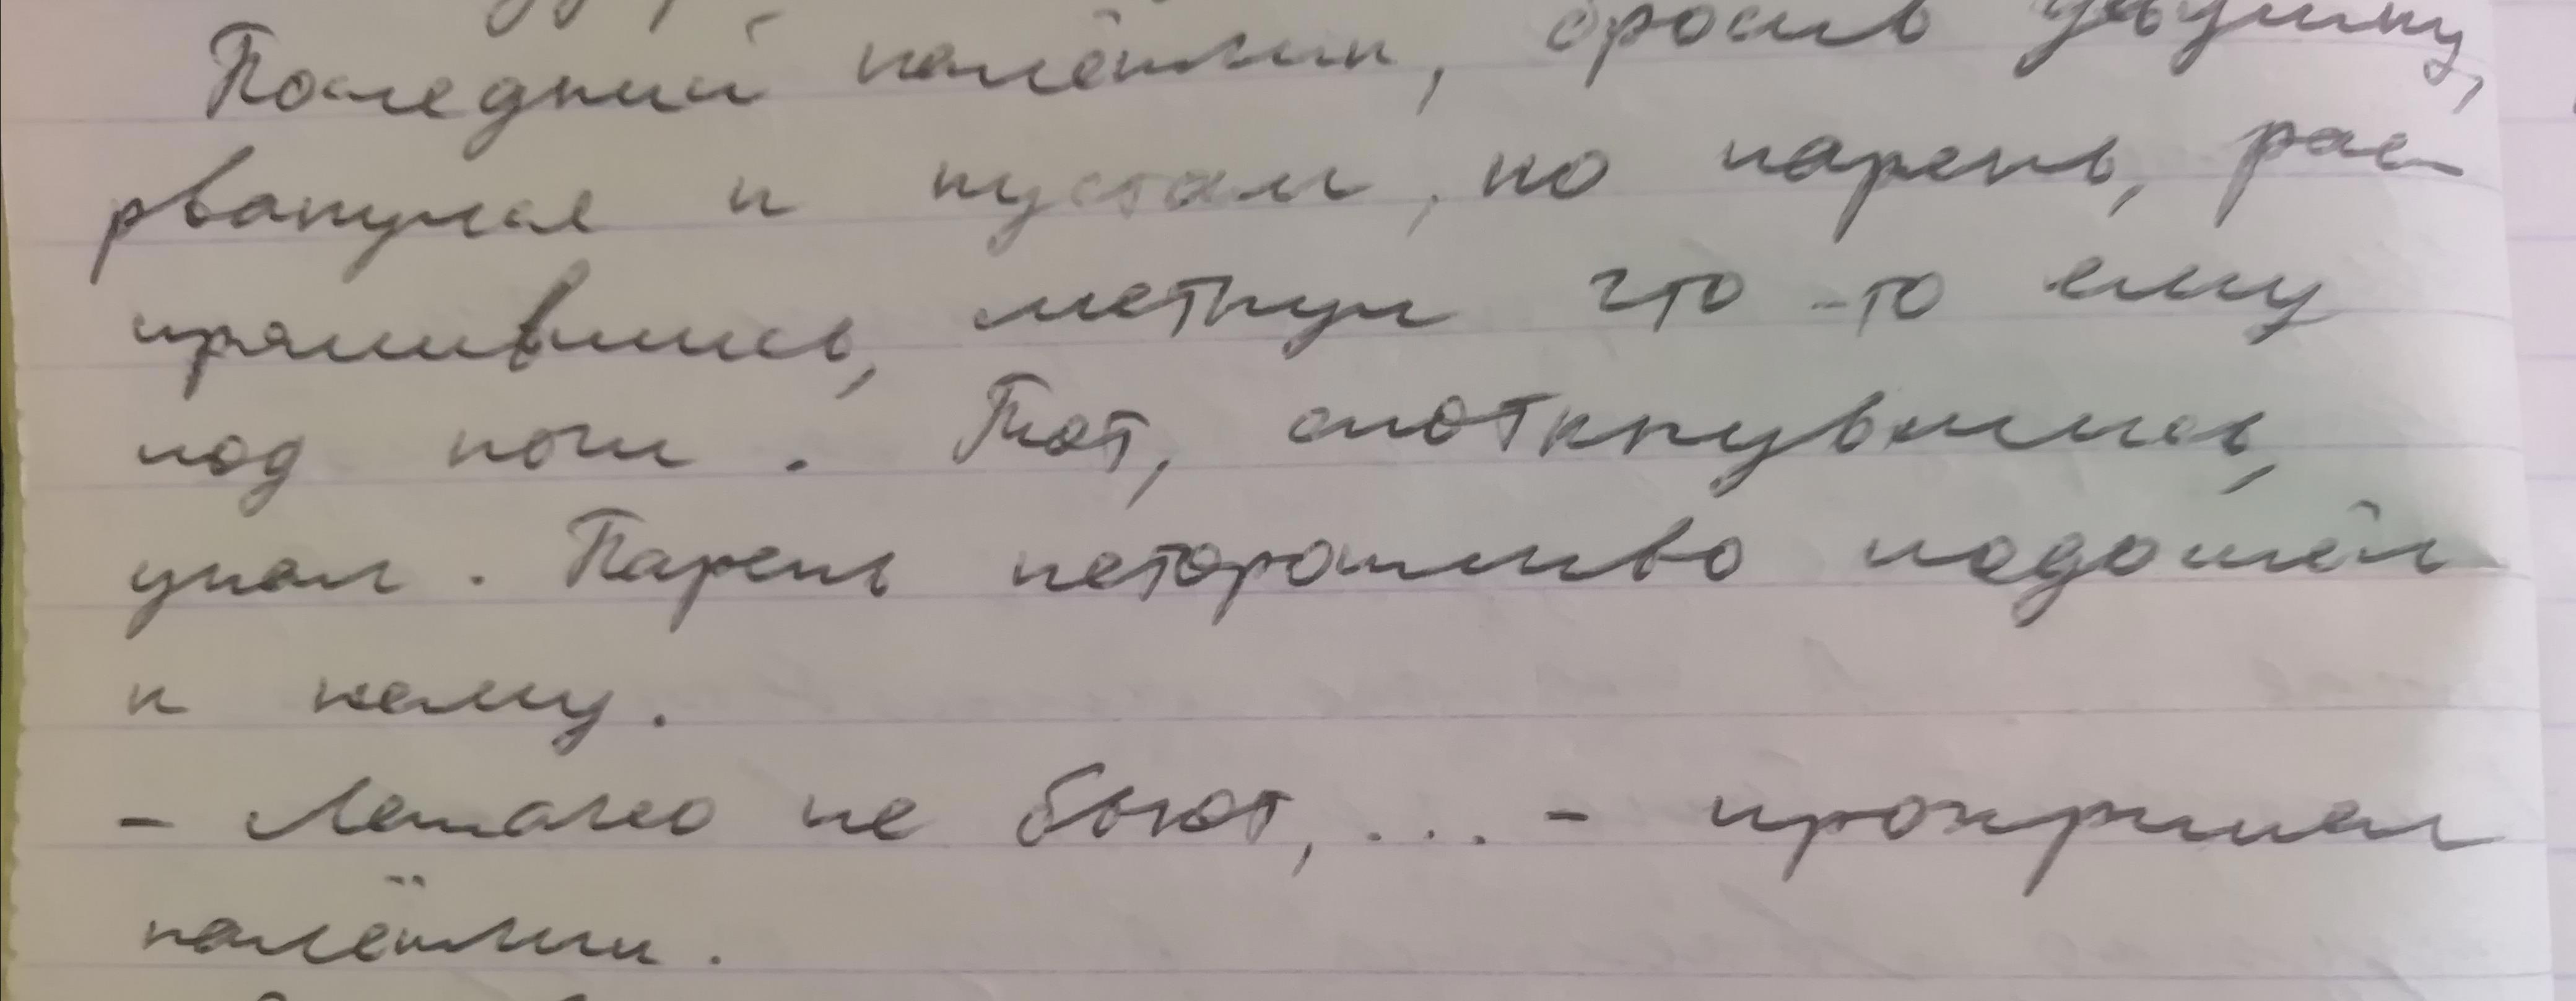 Последний налётчик, бросив девушку,
рванулся к кустам, но парень, рас-
прямившись, метнул что-то ему
под ноги. Тот, споткнувшись,
упал. Парень неторопливо подошёл
к нему.
- Лежачего не бьют, ... - прохрипел
налётчик.